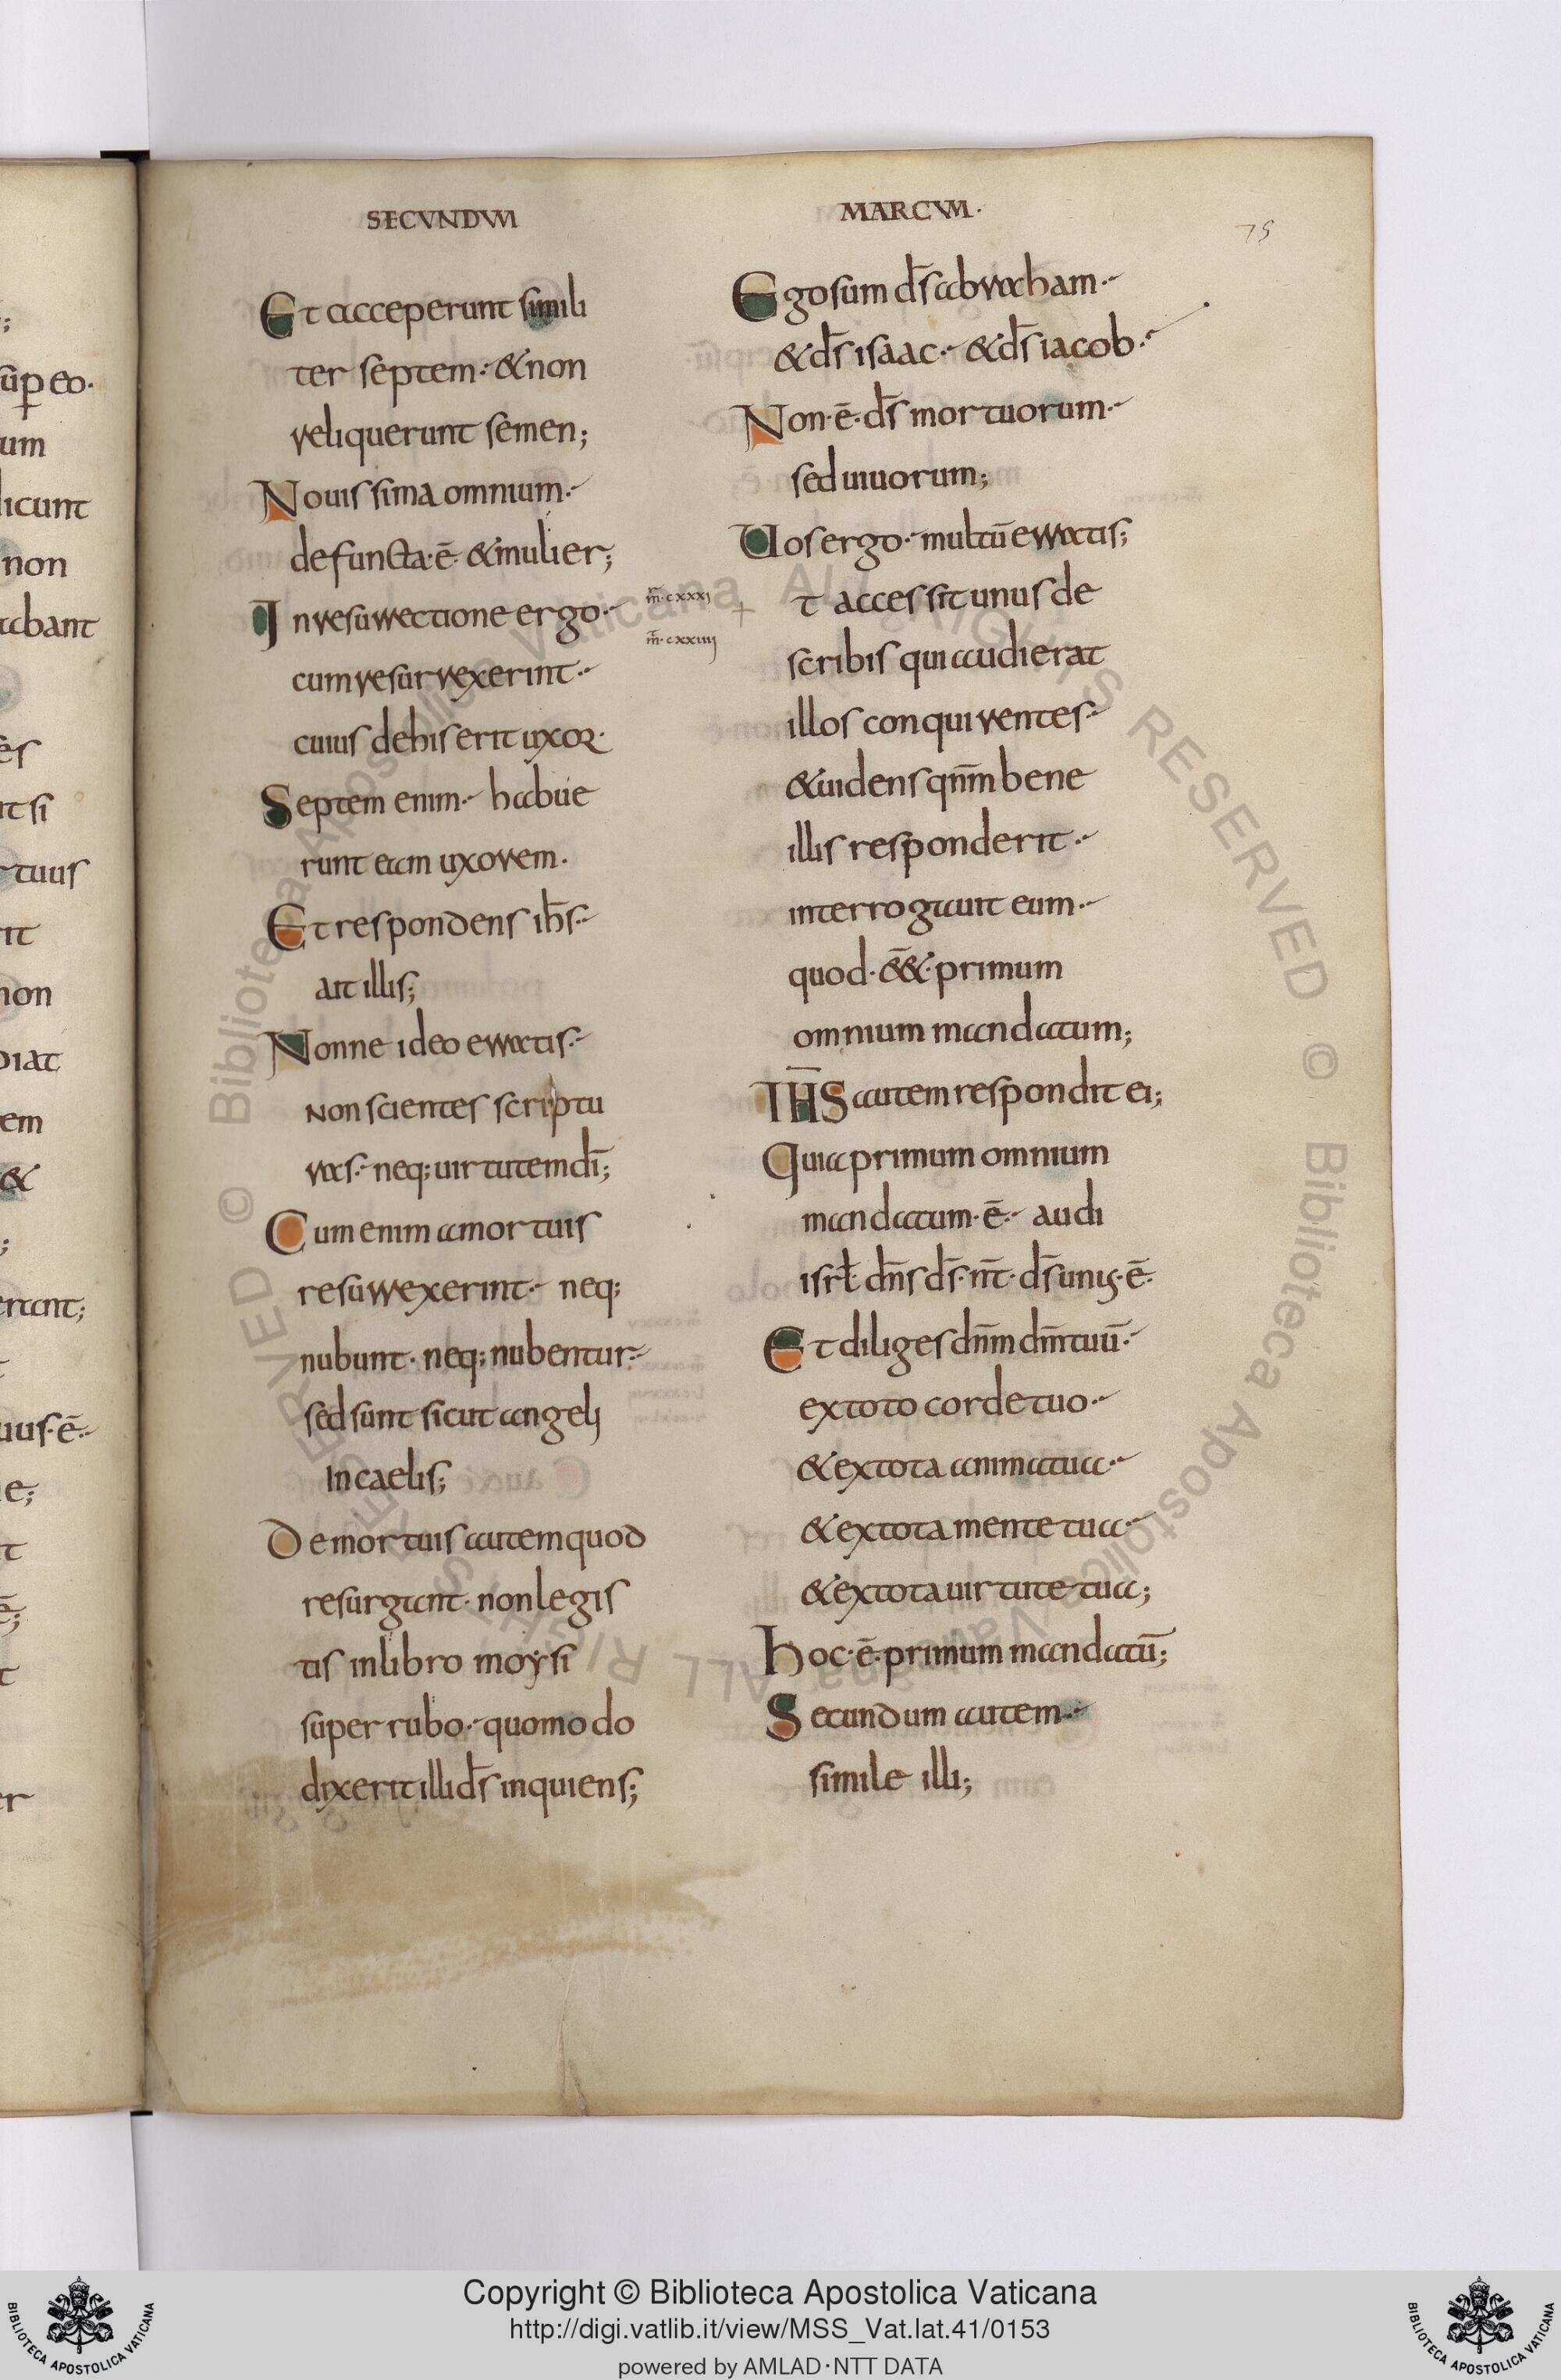 SECVNDVM
Et acceperunt simili
ter septem· & non
reliquerunt semen;
Nouissima omnium·
defuncta·ē· & mulier;
In resurrectione ergo·
cum resurrexerint·
cuius dehis erit uxor·
Septem enim· habue
runt eam uxorem·
Et respondens ih̄s·
ait illis;
Nonne ideo erratis·
non scientes scriptu
ras· neq; uirtutem dī;
Cum enim a mortuis
resurrexerint· neq;
nubunt· neq; nubentur·
sed sunt sicut angeli
in caelis;
De mortuis autem quod
resurgant· non legis
tis in libro moysi
super rubo· quomodo
dixerit illi d̄s inquiens;
m̄·cxxxi
m̄·cxxiiij
MARCVM·
75
Ego sum d̄s abraham·
& d̄s isaac· & d̄s iacob·
Non·ē·d̄s mortuorum·
sed uiuorum;
Uos ergo· multū erratis;
t accessit unus de
scribis qui audierat
illos conquirentes·
& uidens qnm̄ bene
illis responderit·
interrogauit eum·
quod·eē&·primum
omnium mandatum;
IH̄S autem respondit ei;
Quia primum omnium
mandatum·ē· audi
isrl̄ dn̄s d̄s·nt̄· d̄s unus·ē·
Et diliges dn̄m dm̄ tuū·
ex toto corde tuo·
& ex tota anima tua·
& ex tota mente tua·
& ex tota uirtute tua;
Hoc·ē·primum mandatū;
Secundum autem·
simile illi;
;
sup eo·
um
licunt
non
abant
es
it si
rtuus
rit
non
piat
em
&
;
erant;
t
uus·ē·
e;
t
ē;
t
er
© Biblioteca Apostolica Vaticana ALL RIGHTS RESERVED © Biblioteca Apostolica Vaticana ALL RIGHTS RESERVED
Copyright © Biblioteca Apostolica Vaticana
http://digi.vatlib.it/view/MSS_Vat.lat.41/0153
powered by AMLAD·NTT DATA
BIBLIOTECA APOSTOLICA VATICANA
BIBLIOTECA APOSTOLICA VATICANA